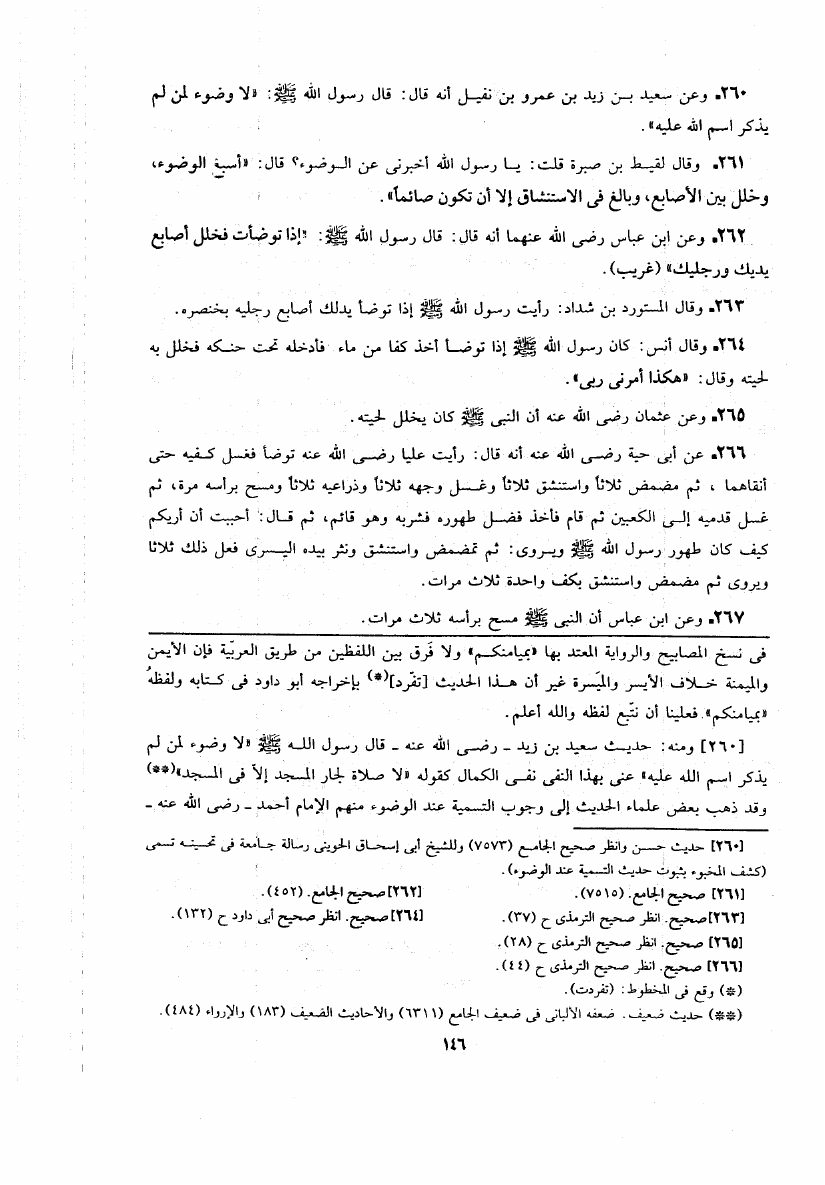 ٢٦٠ـ وعن سعيد بـن زيد بن عمرو بن نفيـل أنه قال: قال رسول الله ﷺ: «لا وضوء لمن لم
يذكر اسم الله عليه».
٢٦١ـ وقال لقيـط بن صبرة قلت: يـا رسول الله أخبرنى عن الـوضوء؟ قال: «أسبغ الوضوء،
وخلل بين الأصابع، وبالغ فى الاستنشاق إلا أن تكون صائماً».
٢٦٢ـ وعن ابن عباس رضى الله عنهما أنه قال: قال رسول الله ﷺ: «إذا توضأت فخلل أصابع
يديك ورجليك» (غريب).
٢٦٣ـ وقال المستورد بن شداد: رأيت رسول الله ﷺ إذا توضأ يدلك أصابع رجليه بخنصره.
٢٦٤ـ وقال أنس: كان رسول الله ﷺ إذا توضـأ أخذ كفا من ماء فأدخله تحت حنـكه فخلل به
لحيته وقال: «هكذا أمرنى ربى».
٢٦٥ـ وعن عثمان رضى الله عنه أن النبى ﷺ كان يخلل لحيته.
٢٦٦ـ عن أبى حية رضـى الله عنه أنه قال: رأيت عليا رضـى الله عنه توضأ فغسل كـفيه حتى
أنقاهما ، ثم مضمض ثلاثاً واستنشق ثلاثاً وغـسل وجهه ثلاثاً وذراعيه ثلاثاً ومسح برأسه مرة، ثم
غسل قدميه إلـى الكعبين ثم قام فأخذ فضـل طهوره فشربه وهو قائم، ثم قـال: أحببت أن أريكم
كيف كان طهور رسول الله ﷺ ويـروى: ثم تمضمض واستنشق ونثر بيده اليـسرى فعل ذلك ثلاثا
ويروى ثم مضمض واستنشق بكف واحدة ثلاث مرات.
٢٦٧ـ وعن ابن عباس أن النبى ﷺ مسح برأسه ثلاث مرات.
فى نسخ المصابيح والرواية المعتد بها «بميامنكـم» ولا فَرق بين اللفظين من طريق العربيّة فإن الأيمن
والميمنة خـلاف الأيسر والميَسرة غير أن هـذا الحديث [تفّرد](*) بإخراجه أبو داود فى كتابه ولفظهُ
«بميامنكم». فعلينا أن نتّبع لفظه والله أعلم.
[٢٦٠] ومنه: حديـث سعيد بن زيد ـ رضـى الله عنه ـ قال رسول اللـه ﷺ «لا وضوء لمن لم
يذكر اسم الله عليه» عنى بهذا النفى نفـى الكمال كقوله «لا صلاة لجار المسجد إلاّ فى المسجد»(**)
وقد ذهب بعض علماء الحديث إلى وجوب التسمية عند الوضوء منهم الإمام أحمد ـ رضى الله عنه ـ
[٢٦٠] حديث حسن وانظر صحيح الجامع (٧٥٧٣) وللشيخ أبى إسحـاق الحوينى رسالة جـامعة فى تحسينـه تسمى
(كشف المخبوء بثبوت حديث التسمية عند الوضوء).
[٢٦١] صحيح الجامع. (٧٥١٥). [٢٦٢] صحيح الجامع. (٤٥٢).
[٢٦٣] صحيح. انظر صحيح الترمذى ح (٣٧). [٢٦٤] صحيح. انظر صحيح أبى داود ح (١٣٢).
[٢٦٥] صحيح. انظر صحيح الترمذى ح (٢٨).
[٢٦٦] صحيح. انظر صحيح الترمذى ح (٤٤).
(*) وقع فى المخطوط: (تفردت).
(**) حديث ضعيف. ضعفه الألبانى فى ضعيف الجامع (٦٣١١) والأحاديث الضعيف (١٨٣) والإرواء (٤٨٤).
١٤٦